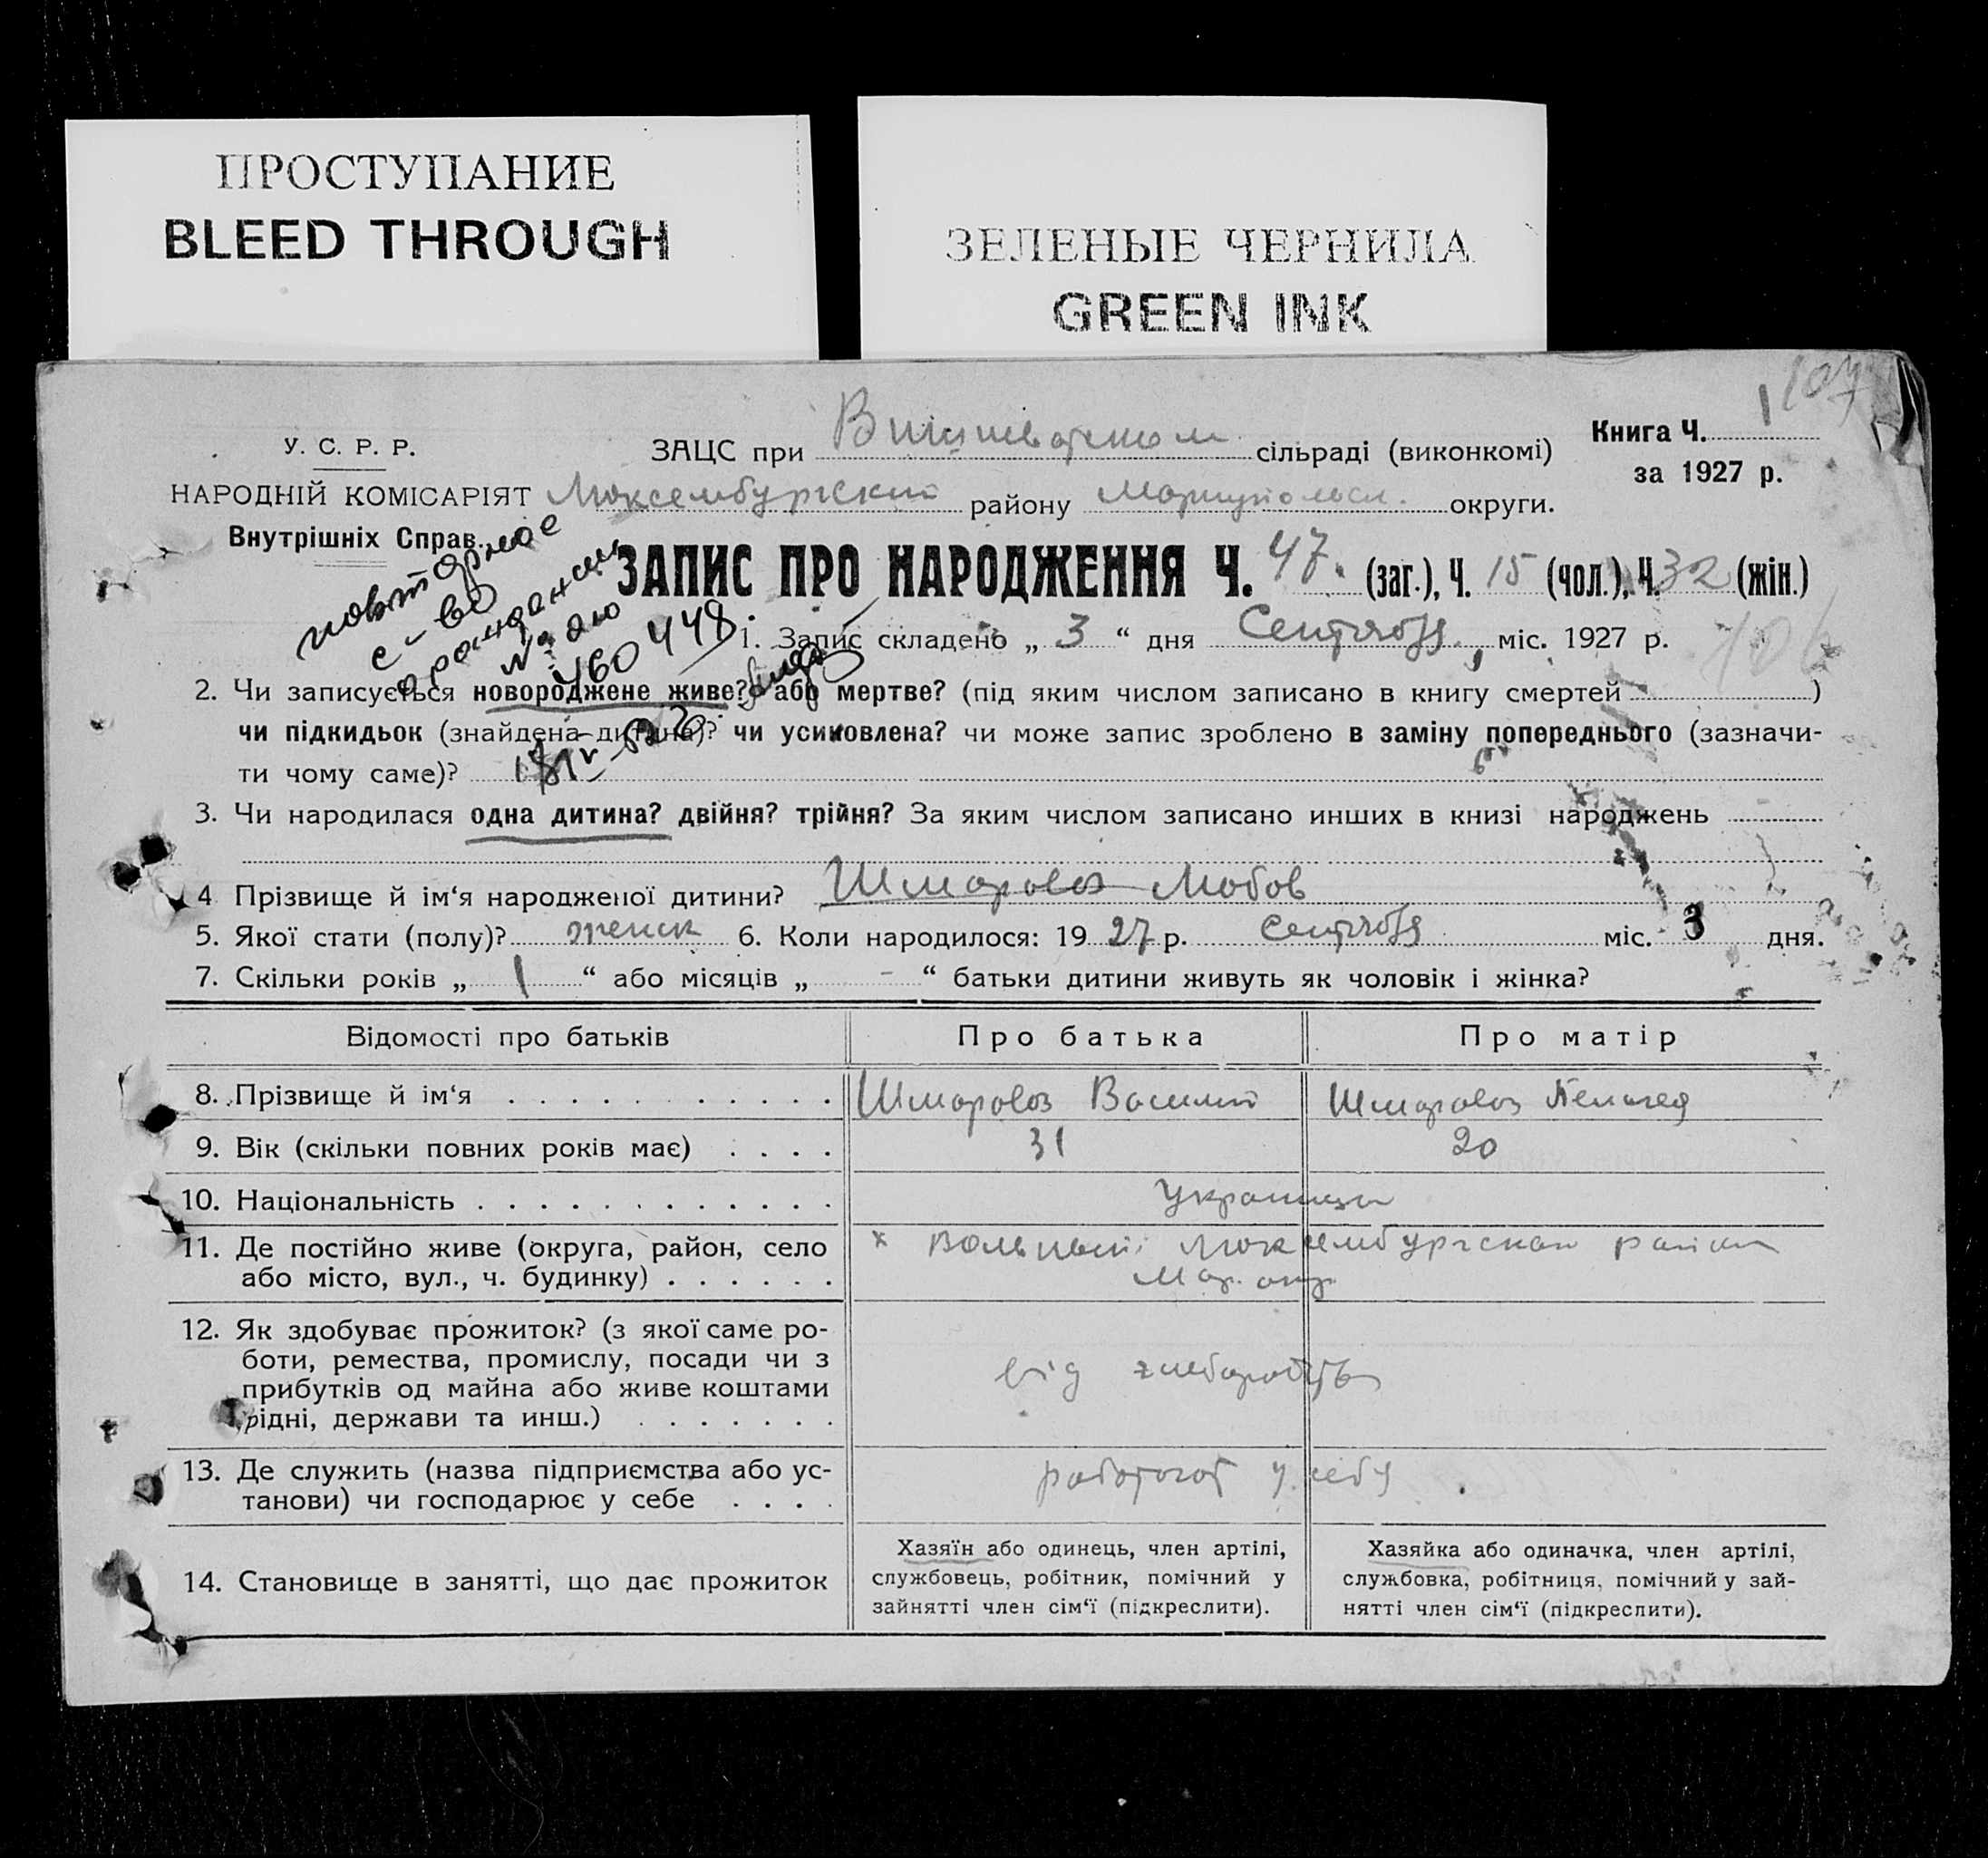 ПРОСТУПАНИЕ
BLEED THROUGH
ЗЕЛЕНЫЕ ЧЕРНИЛА
GREEN INK
107
У. С. Р. Р.
НАРОДНІЙ КОМІСАРІЯТ
Внутрішніх Справ.
Книга Ч. 1
за 1927 р.
ЗАЦС при сільраді (виконкомі)
Люксембургский району Мариупольск. округи.
повторное
с-во
№
460448
ЗАПИС ПРО НАРОДЖЕННЯ Ч. 47. (заг.), Ч. 15 (чол.), Ч. 32 (жін.)
1. Запис складено „ 3 “ дня Сентября, міс. 1927 р.
106
2. Чи записується новороджене живе? або мертве? (під яким числом записано в книгу смертей )
чи підкидьок (знайдена дитина)? чи усиновлена? чи може запис зроблено в заміну попереднього (зазначи-
ти чому саме)?
3. Чи народилася одна дитина? двійня? трійня? За яким числом записано инших в книзі народжень
4 Прізвище й ім‘я народженої дитини? Шмаровоз Любов
5. Якої стати (полу)? женск 6. Коли народилося: 19 27 р. Сентября міс. 3 дня.
7. Скільки років „ 1 “ або місяців „ - “ батьки дитини живуть як чоловік і жінка?
Відомості про батьків Про батька Про матір
8. Прізвище й ім‘я Шмаровоз Василий Шмаровоз Пелагея
9. Вік (скільки повних років має) 31 20
10. Національність Украинци
11. Де постійно живе (округа, район, село
або місто, вул., ч. будинку)
х Вольный Люксембургскаи район
Мар. окр
12. Як здобуває прожиток? (з якої саме ро-
боти, ремества, промислу, посади чи з
прибутків од майна або живе коштами
рідні, держави та инш.)
від хлеборобства
13. Де служить (назва підприємства або ус-
танови) чи господарює у себе
работают у себя
14. Становище в занятті, що дає прожиток
Хазяїн або одинець, член артілі,
службовець, робітник, помічний у
зайнятті член сім‘ї (підкреслити).
Хазяйка або одиначка, член артілі,
службовка, робітниця, помічний у зай-
нятті член сім‘ї (підкреслити).